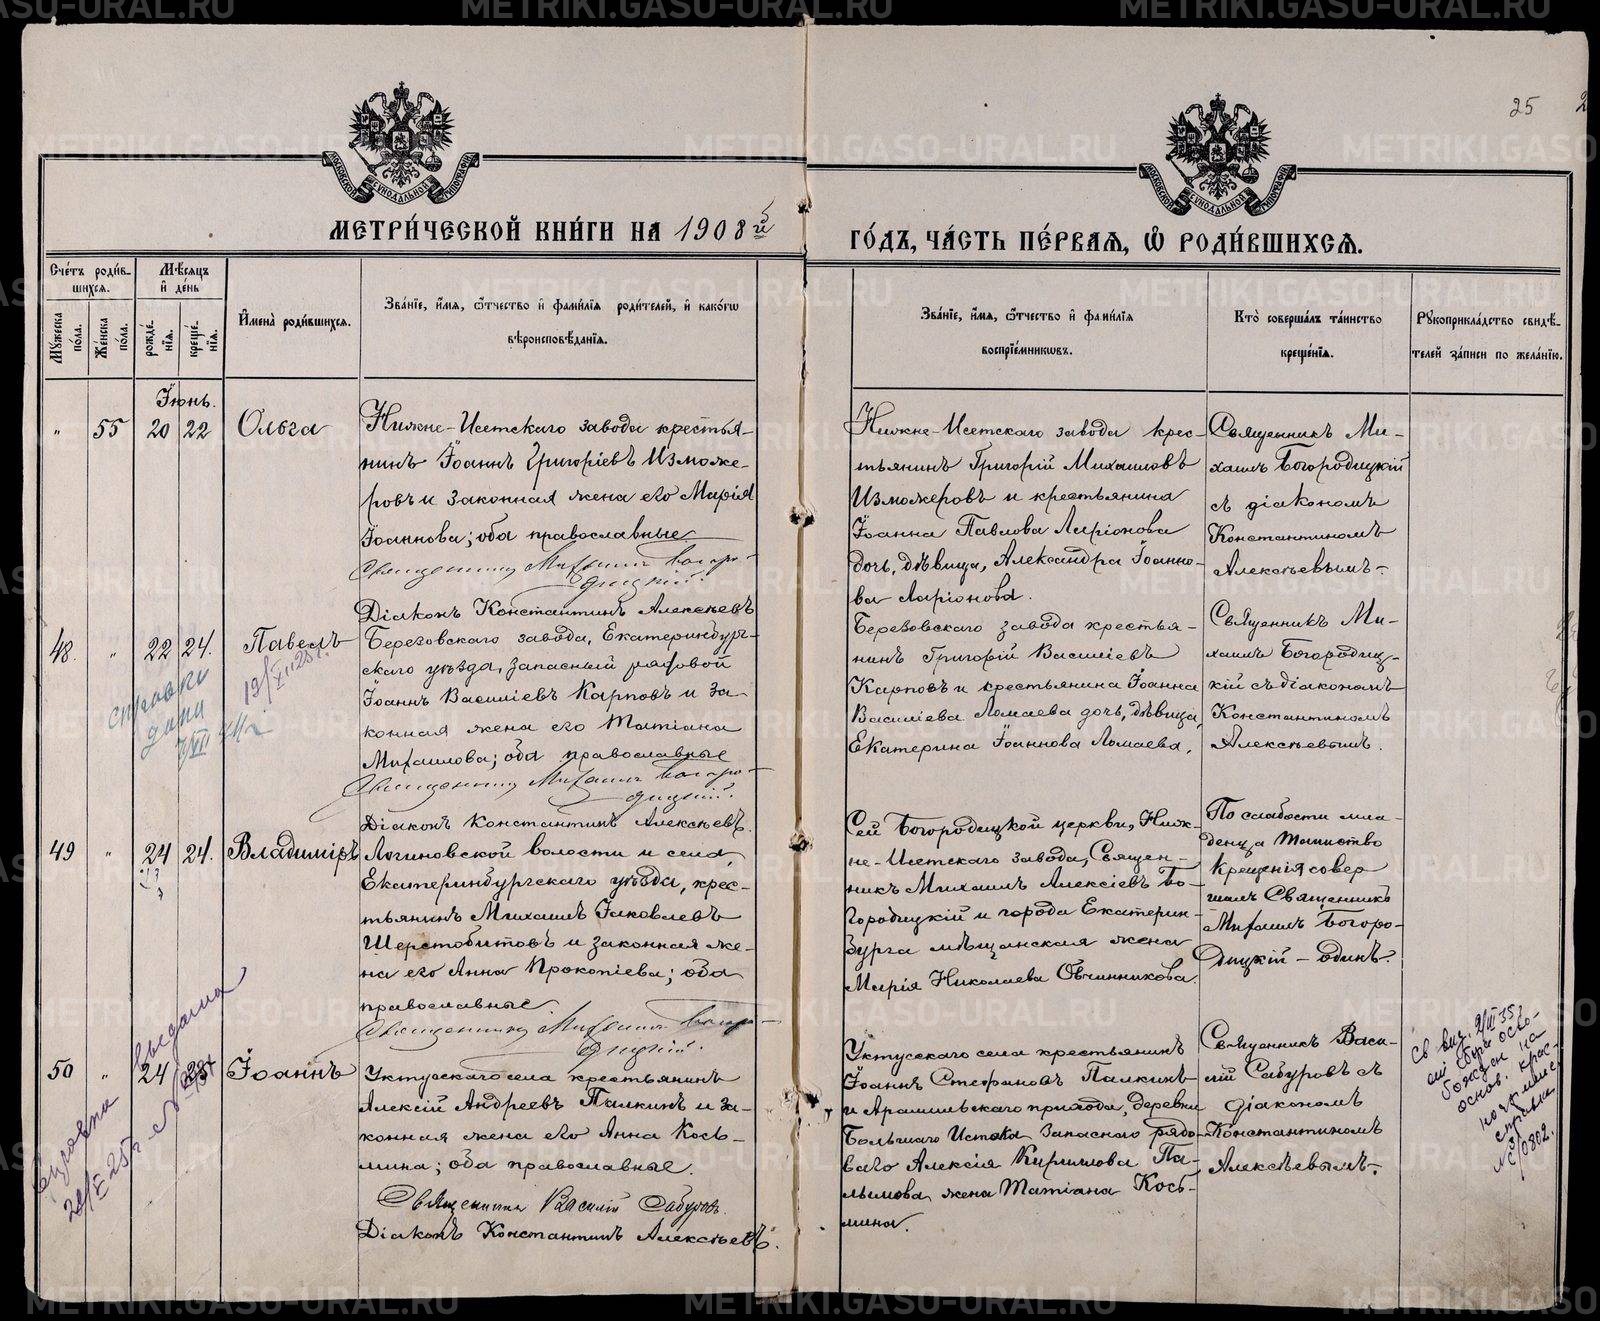 25
МОСКОВСКОЙ СѴНОДАЛЬНОЙ ТИПОГРАФІИ
МОСКОВСКОЙ СѴНОДАЛЬНОЙ ТИПОГРАФІИ
МЕТРИ́ЧЕСКОЙ КНИ́ГИ НА 1908й
ГО́ДЪ, ЧА́СТЬ ПЕ́РВАЯ, Ѡ҆ РОДИ́ВШИХСЯ.
Сче́тъ роди́в-
шихся.
Мꙋ́жеска по́ла.
Же́нска по́ла.
Мѣ́сяцъ
и҆ де́нь
рожде́-
нїя.
креще́-
нїя.
И҆мена̀ роди́вшихся.
Зва́нїе, и҆́мя, ѻ҆́тчество и҆ фами́лїя роди́телей, и҆ како́гѡ
вѣроисповѣ́данїя.
Зва́нїе, и҆́мя, ѻ҆́тчество и҆ фами́лїя
воспрїе́мниковъ.
Кто̀ соверша́лъ та́инство
креще́нїя.
Рꙋкоприкла́дство свидѣ́-
телей за́писи по жела́нїю.
Іюнь.
" 55 20 22 Ольга
Нижне-Исетскаго завода крестья-
нинъ Іоаннъ Григоріевъ Изможе-
ровъ и законная жена его Марія
Іоаннова; оба православные
Священникъ Михаилъ Богоро-
дицкій.
Діаконъ Константинъ Алексѣевъ
Нижне-Исетскаго завода крес-
тьянинъ Григорій Михаиловъ
Изможеровъ и крестьянина
Іоанна Павлова Ларіонова
дочь, дѣвица, Александра Іоанно-
ва Ларіонова.
Священникъ Ми-
хаилъ Богородицкій
съ діакономъ
Константиномъ
Алексѣевымъ.
48. " 22 24. Павелъ
справки
даны
Березовскаго завода, Екатеринбург-
скаго уѣзда, запасный рядовой
Іоаннъ Василіевъ Карповъ и за-
конная жена его Татіана
Михаилова; оба православные
Священникъ Михаилъ Богоро-
дицкій.
Діаконъ Константинъ Алексѣевъ.
Березовскаго завода крестья-
нинъ Григорій Василіевъ
Карповъ и крестьянина Іоанна
Василіева Ломаева дочь, дѣвица,
Екатерина Іоаннова Ломаева.
Священникъ Ми-
хаилъ Богородиц-
кій съ діакономъ
Константиномъ
Алексѣевымъ.
49 " 24 24. Владиміръ
Логиновской волости и села,
Екатеринбургскаго уѣзда, крес-
тьянинъ Михаилъ Іаковлевъ
Шерстобитовъ и законная же-
на его Анна Прокопіева; оба
православные.
Священникъ Михаилъ Богоро-
дицкій.
Сей Богородицкой церкви, Ниж-
не-Исетскаго завода, Священ-
никъ Михаилъ Алексіевъ Бо-
городицкій и города Екатерин-
бурга мѣщанская жена
Марія Николаева Овчинникова.
По слабости мла-
денца Таинство
Крещенія совер
шилъ Священникъ
Михаилъ Богоро-
дицкій - одинъ.
50 " 24 Іоаннъ
выдана
Уктусскаго села крестьянинъ
Алексій Андреевъ Палкинъ и за-
конная жена его Анна Кось-
мина; оба православные.
Священникъ Василій Сабуровъ.
Діаконъ Константинъ Алексѣевъ.
Уктусскаго села крестьянинъ
Іоаннъ Стефановъ Палкинъ
и Арамильскаго прихода, деревни
Большаго Истока запаснаго рядо-
ваго Алексія Кириллова Па-
льмова жена Татіана Кось-
мина.
Священникъ Васи-
лій Сабуровъ съ
діакономъ
Константиномъ
Алексѣевымъ.
METRIKI.GASO-URAL.RU